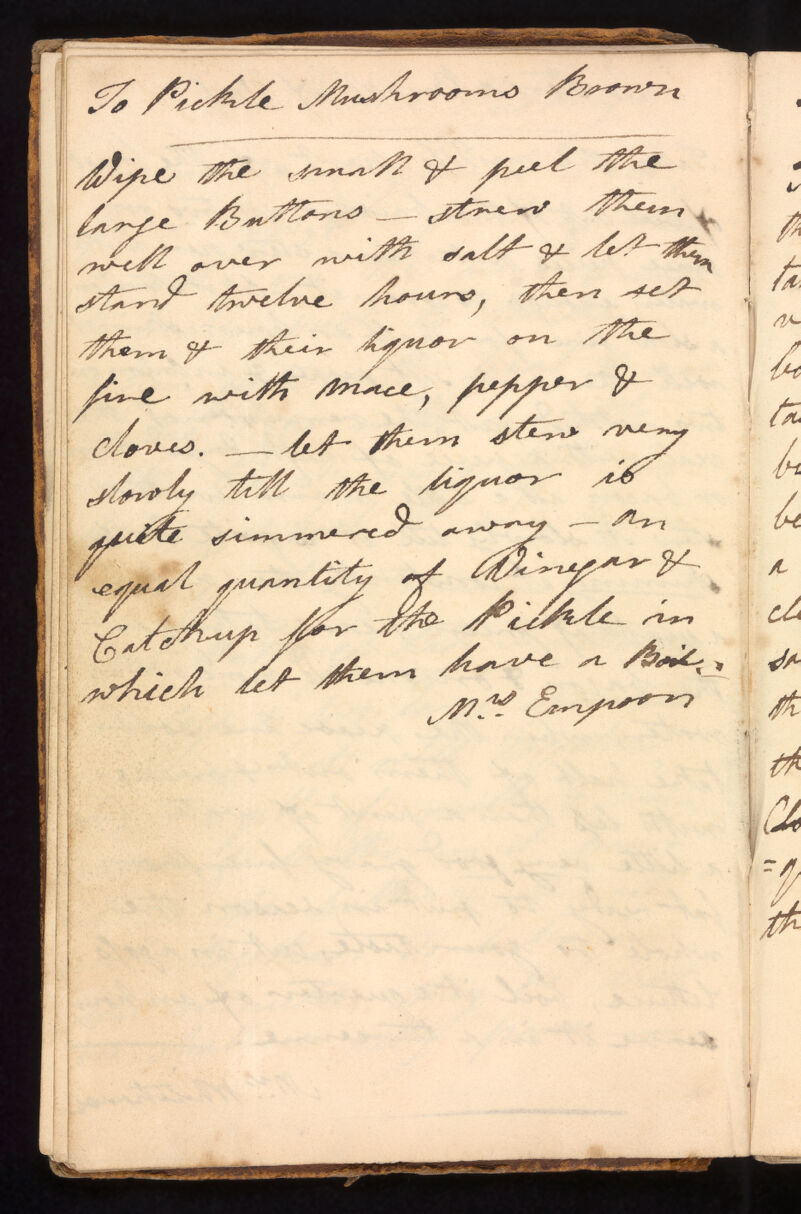 To Pickle Mushrooms Brown
Wipe the small & peel the
large Buttons — strew them
well over with salt & let them
stand twelve hours, then set
them & their liquor on the
fire with mace, pepper &
cloves. — let them stew very
slowly till the liquor is
quite simmered away — an
equal quantity of Vinegar &
Catchup for the Pickle in
which let them have a Boil.
Mrs. Empson